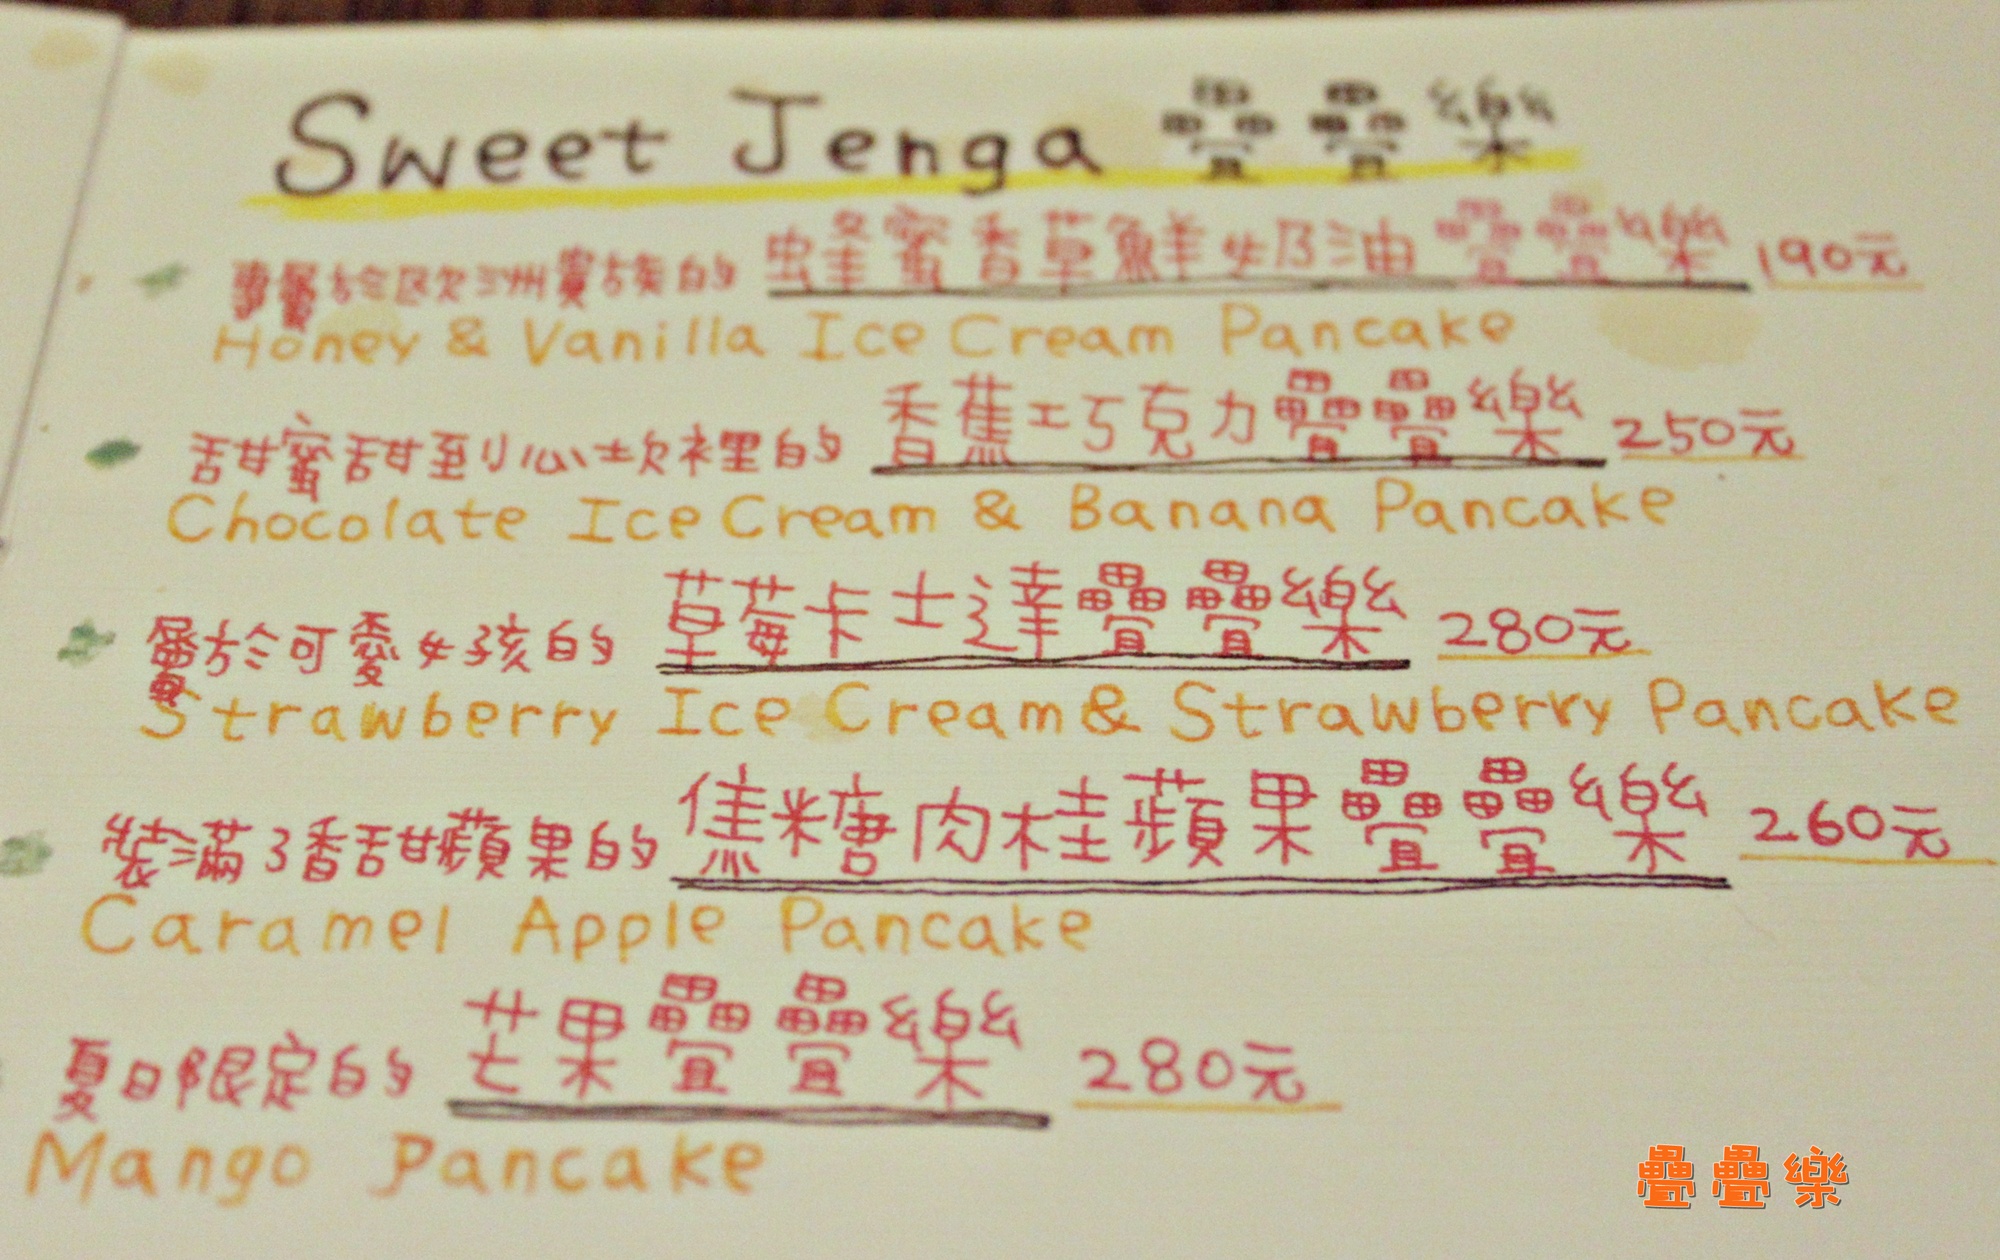 Sweet Jenga 疊疊樂
專屬於歐洲貴族的 蜂蜜香草鮮奶油疊疊樂 190元
Honey & Vanilla Ice Cream Pancake
甜蜜甜到心坎裡的 香蕉巧克力疊疊樂 250元
Chocolate Ice Cream & Banana Pancake
屬於可愛女孩的 草莓卡士達疊疊樂 280元
Strawberry Ice Cream & Strawberry Pancake
裝滿了香甜蘋果的 焦糖肉桂蘋果疊疊樂 260元
Caramel Apple Pancake
夏日限定的 芒果疊疊樂 280元
Mango Pancake
疊疊樂